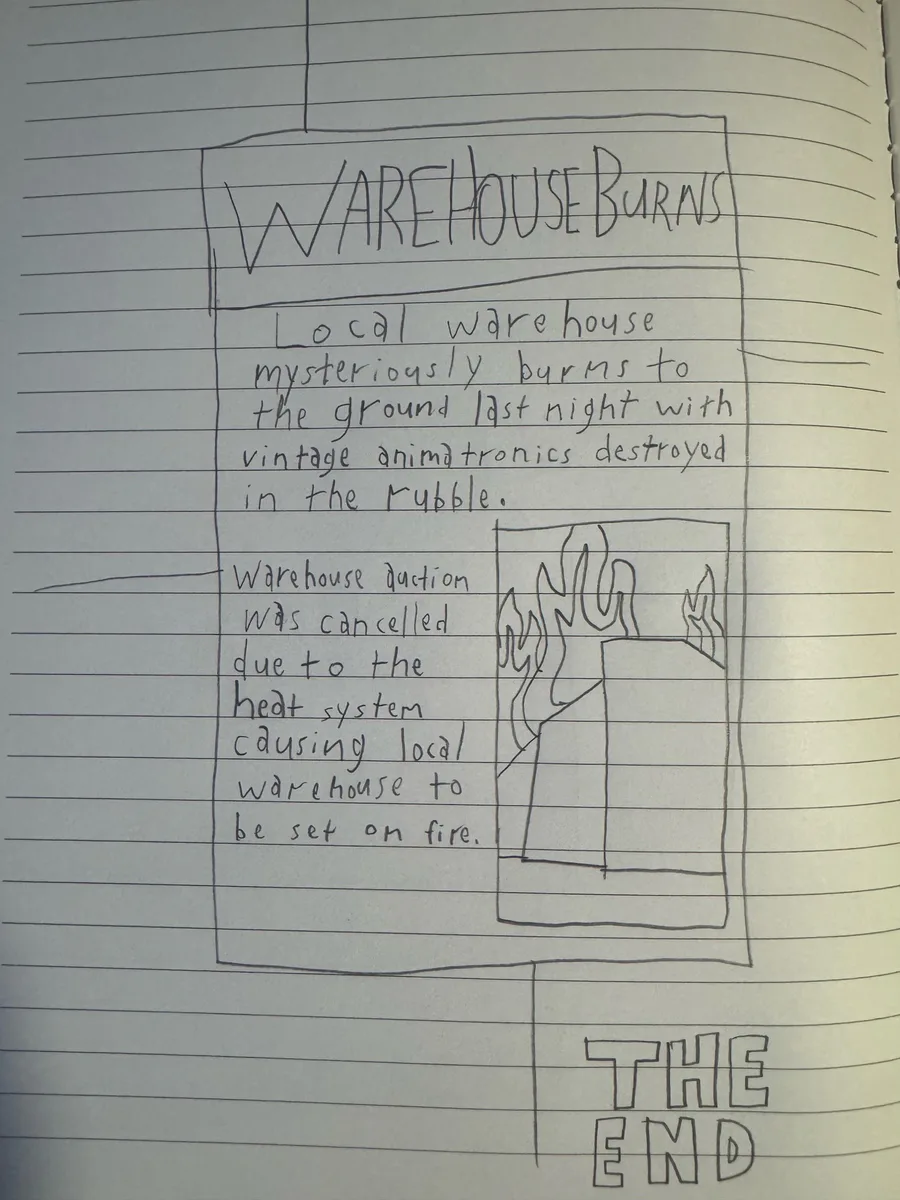 WAREHOUSE BURNS
Local warehouse
mysteriously burns to
the ground last night with
vintage animatronics destroyed
in the rubble.
Warehouse auction
was cancelled
due to the
heat system
causing local
warehouse to
be set on fire.
THE
END